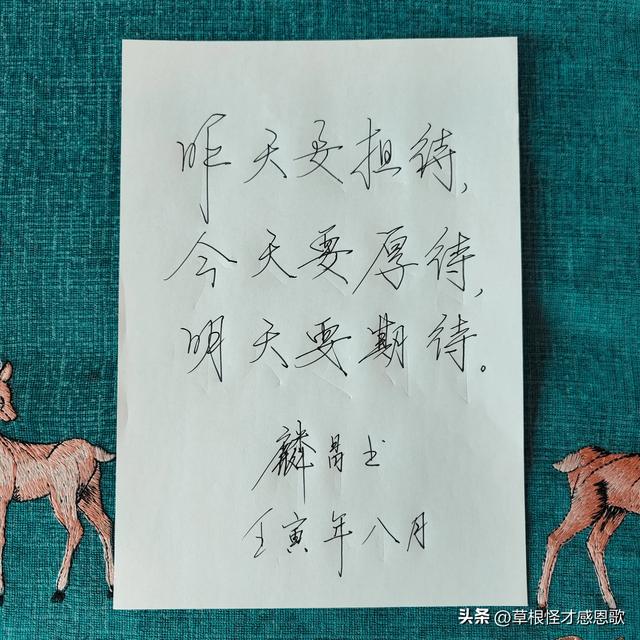 昨天要担待,
今天要厚待,
明天要期待。
麟昌书
壬寅年八月
头条 @草根怪才感恩歌